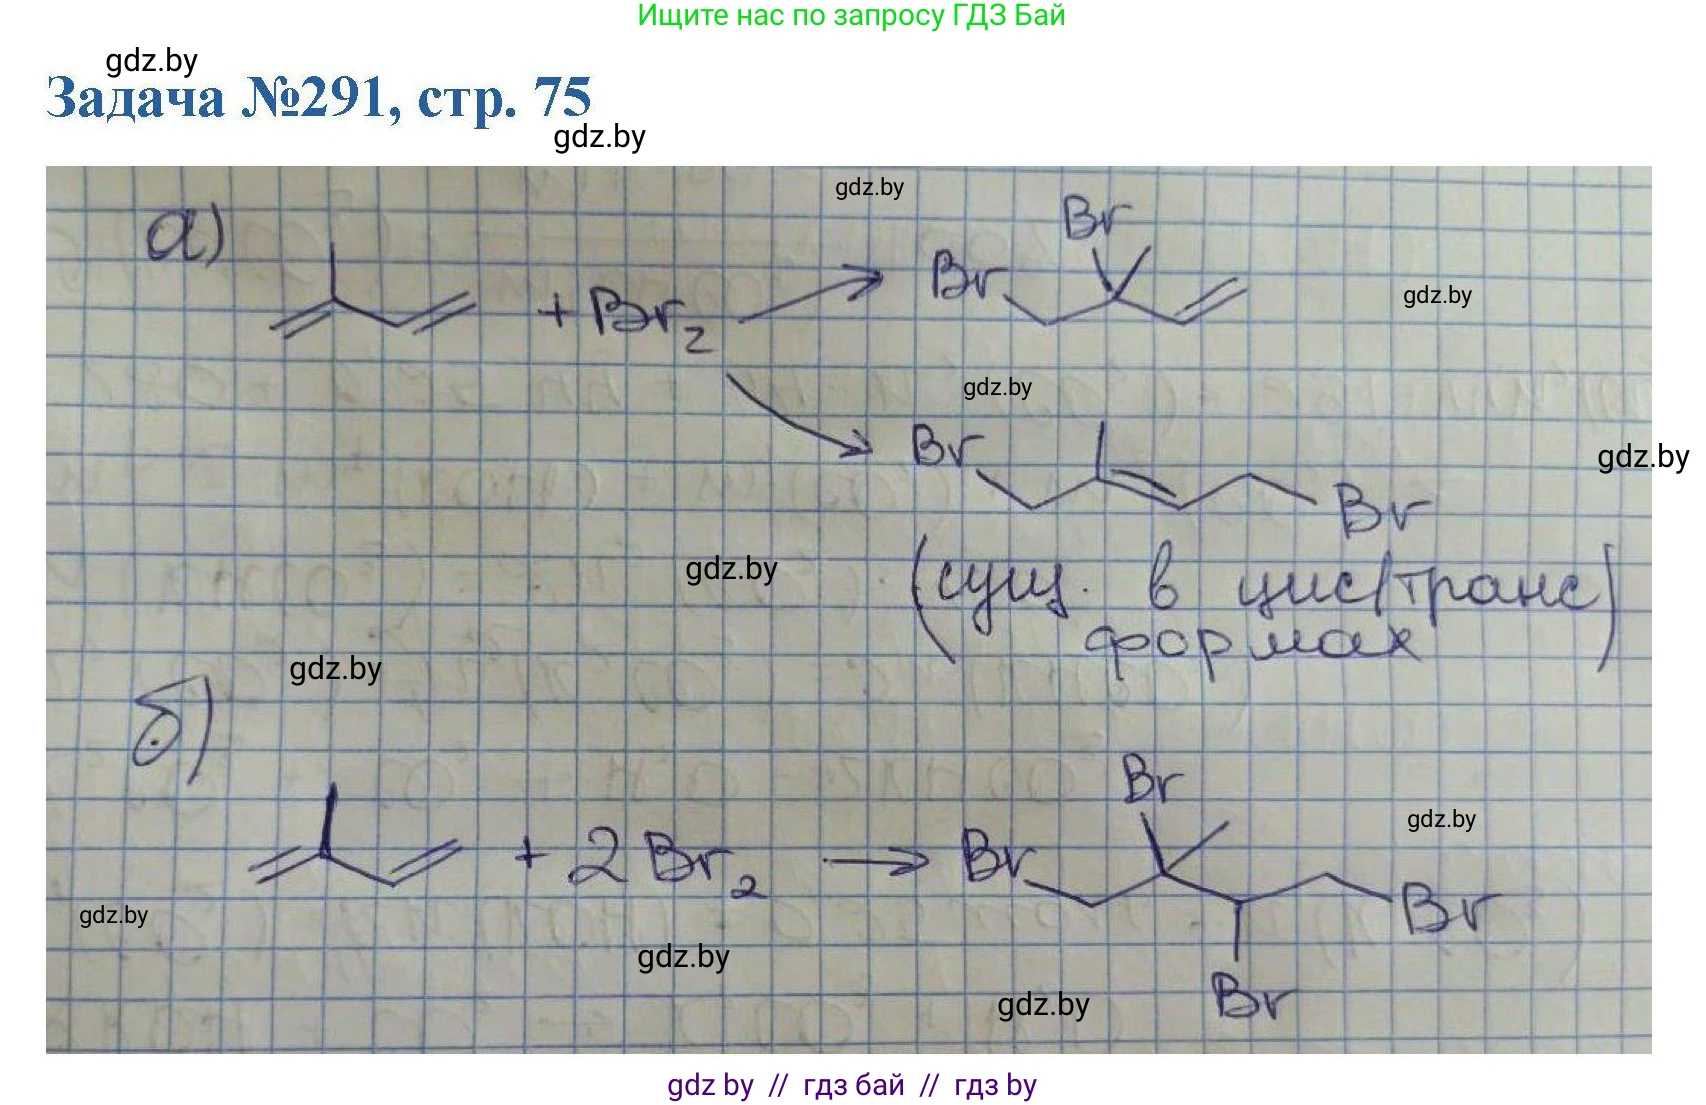 Ищите нас по запросу ГДЗ Бай
gdz.by
Задача №291, стр. 75
gdz.by
gdz.by
а)
Br
Br
+ Br2
gdz.by
gdz.by
Br
gdz.by
Br
gdz.by
(сущ. в цис/транс)
формах
gdz.by
б)
Br
gdz.by
+ 2 Br2
Br
Br
gdz.by
gdz.by
Br
gdz.by
gdz by // гдз бай // гдз by